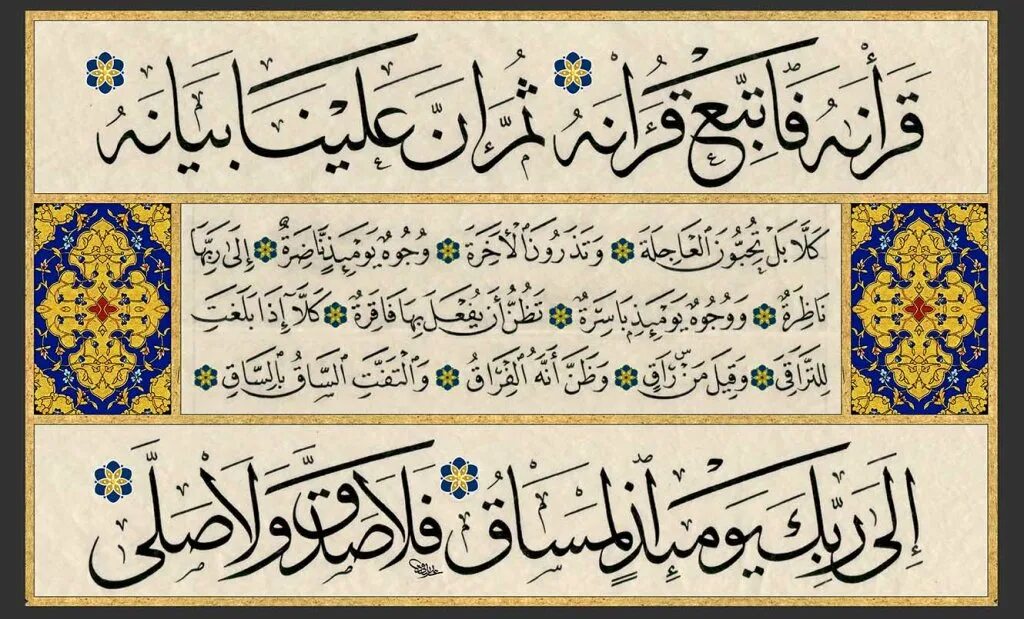 قَرَأْنَٰهُ فَاتَّبِعْ قُرْاٰنَهُ ثُمَّ اِنَّ عَلَيْنَا بَيَانَهُ
كَلَّا بَلْ تُحِبُّونَ ٱلْعَاجِلَةَ وَتَذَرُونَ ٱلْأَخِرَةَ وُجُوهٌ يَوْمَئِذٍ نَّاضِرَةٌ إِلَىٰ رَبِّهَا
نَاظِرَةٌ وَوُجُوهٌ يَوْمَئِذٍ بَاسِرَةٌ تَظُنُّ أَن يُفْعَلَ بِهَا فَاقِرَةٌ كَلَّآ إِذَا بَلَغَتِ
ٱلتَّرَاقِيَ وَقِيلَ مَنْ رَّاقٍ وَظَنَّ أَنَّهُ ٱلْفِرَاقُ وَٱلْتَفَّتِ ٱلسَّاقُ بِٱلسَّاقِ
إِلَىٰ رَبِّكَ يَوْمَئِذٍ الْمَسَاقُ فَلَا صَدَّقَ وَلَا صَلَّى